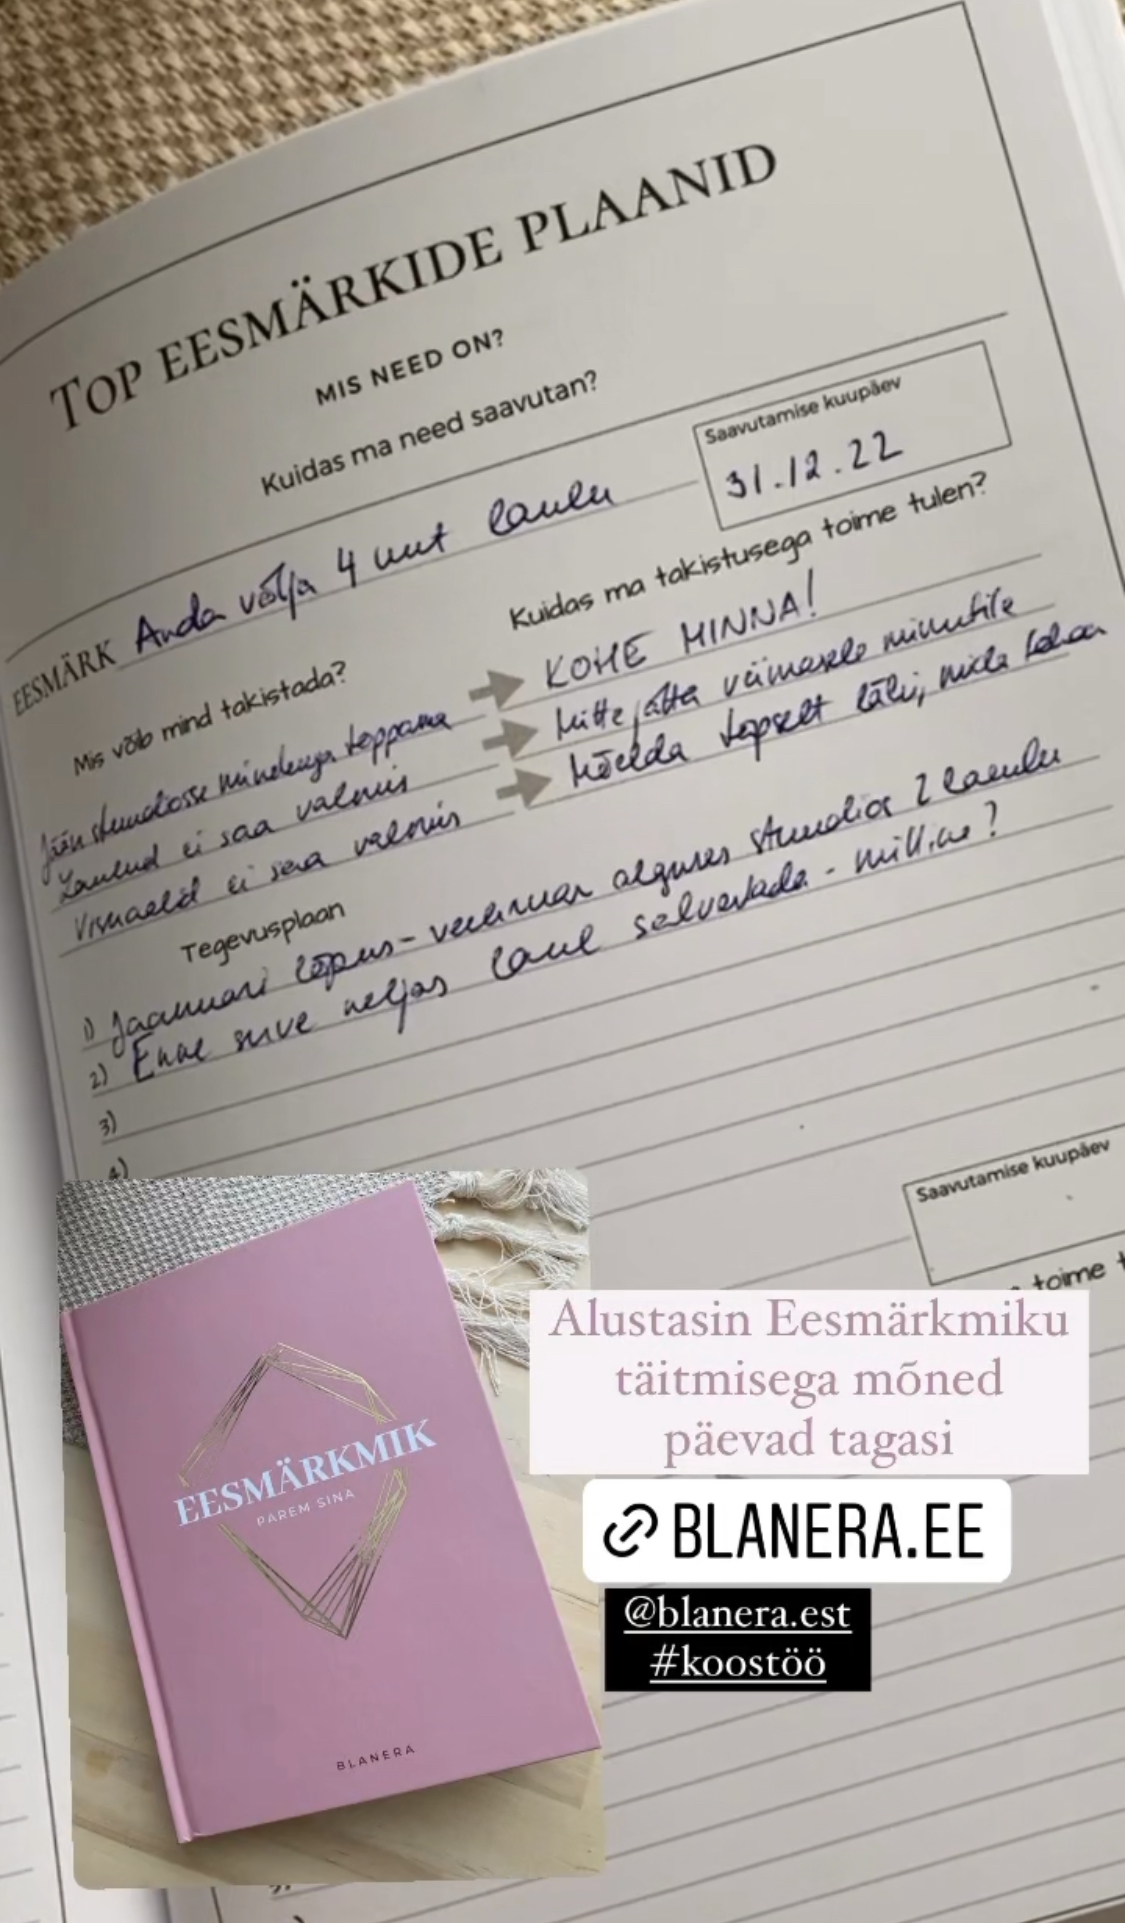 TOP EESMÄRKIDE PLAANID
MIS NEED ON?
Kuidas ma need saavutan?
Saavutamise kuupäev
31.12.22
EESMÄRK Anda välja 4 uut laulu
Mis võib mind takistada?
Kuidas ma takistusega toime tulen?
Jään stuudiosse minekuga toppama
KOHE MINNA!
Laulud ei saa valmis
Mitte jätta viimasele minutile
Visuaalid ei saa valmis
Mõelda täpselt läbi, mida tahan
Tegevusplaan
1) Jaanuari lõpus - veebruar alguses stuudios 2 laulu
2) Enne suve neljas laul salvestada - milline?
3)
4)
Saavutamise kuupäev
toime t
Alustasin Eesmärkmiku
täitmisega mõned
päevad tagasi
BLANERA.EE
@blanera.est
#koostöö
EESMÄRKMIK
PAREM SINA
BLANERA